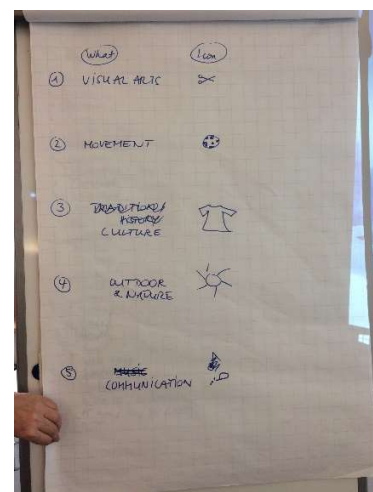 What Icon
1 VISUAL ARTS
2 MOVEMENT
3 TRADITIONS
HISTORY
CULTURE
4 OUTDOOR
& NATURE
5 MUSIC
COMMUNICATION